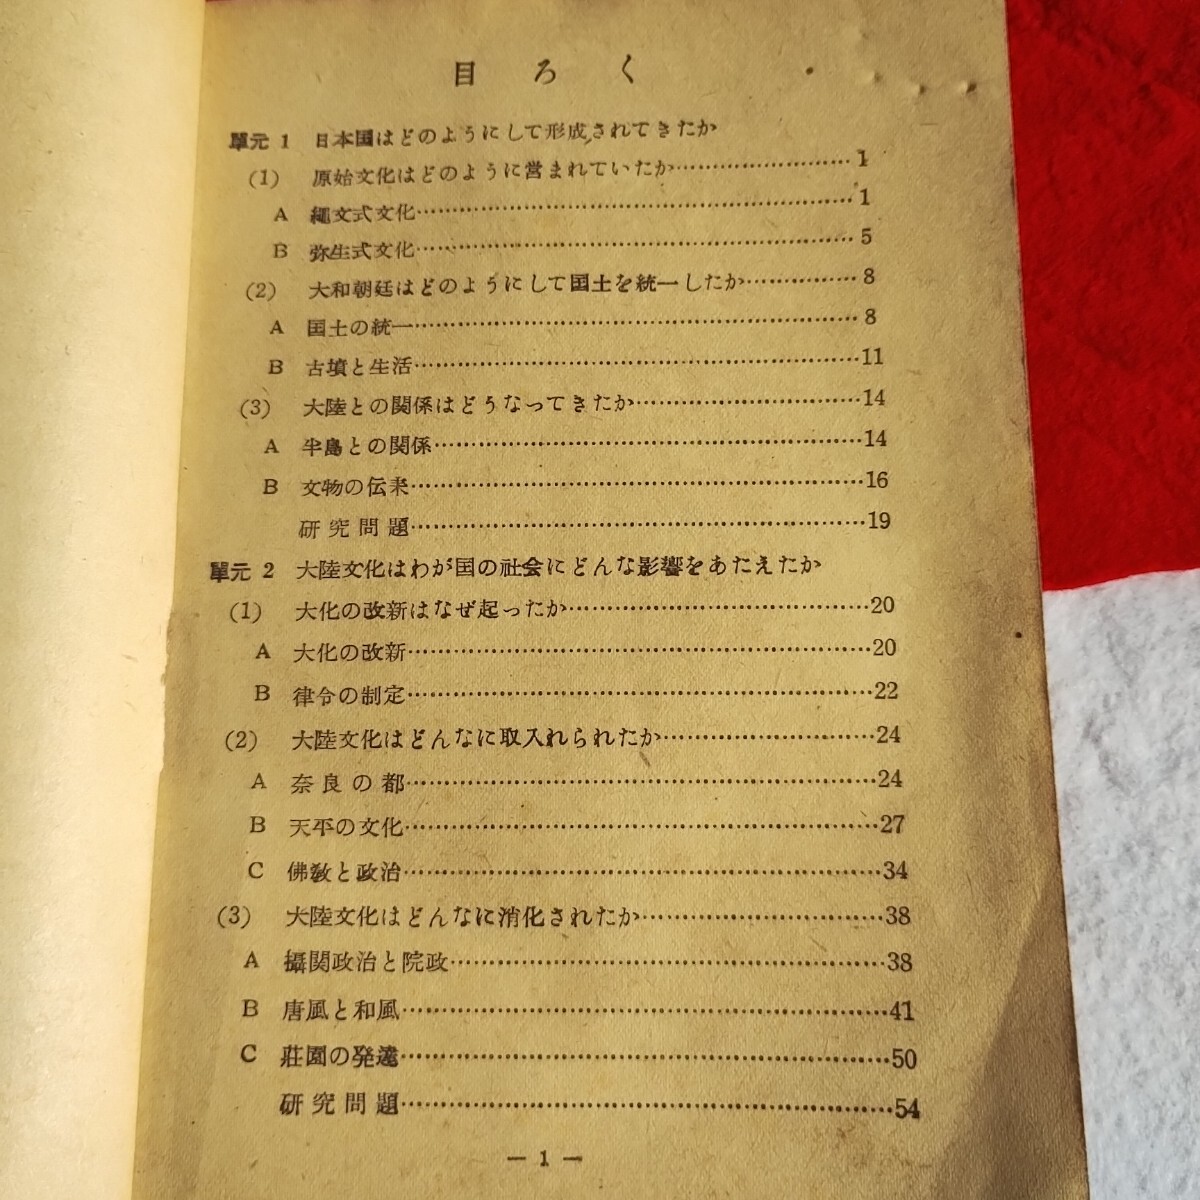 目ろく
單元 1 日本国はどのようにして形成されてきたか
(1) 原始文化はどのように営まれていたか……………………1
A 繩文式文化……………………………………………1
B 弥生式文化……………………………………………5
(2) 大和朝廷はどのようにして国土を統一したか……………8
A 国土の統一……………………………………………8
B 古墳と生活……………………………………………11
(3) 大陸との関係はどうなってきたか……………………14
A 半島との関係…………………………………………14
B 文物の伝来……………………………………………16
研究問題……………………………………………19
單元 2 大陸文化はわが国の社会にどんな影響をあたえたか
(1) 大化の改新はなぜ起ったか……………………………20
A 大化の改新……………………………………………20
B 律令の制定……………………………………………22
(2) 大陸文化はどんなに取入れられたか……………………24
A 奈良の都……………………………………………24
B 天平の文化……………………………………………27
C 佛教と政治……………………………………………34
(3) 大陸文化はどんなに消化されたか……………………38
A 攝関政治と院政…………………………………………38
B 唐風と和風……………………………………………41
C 莊園の発達……………………………………………50
研究問題……………………………………………54
— 1 —